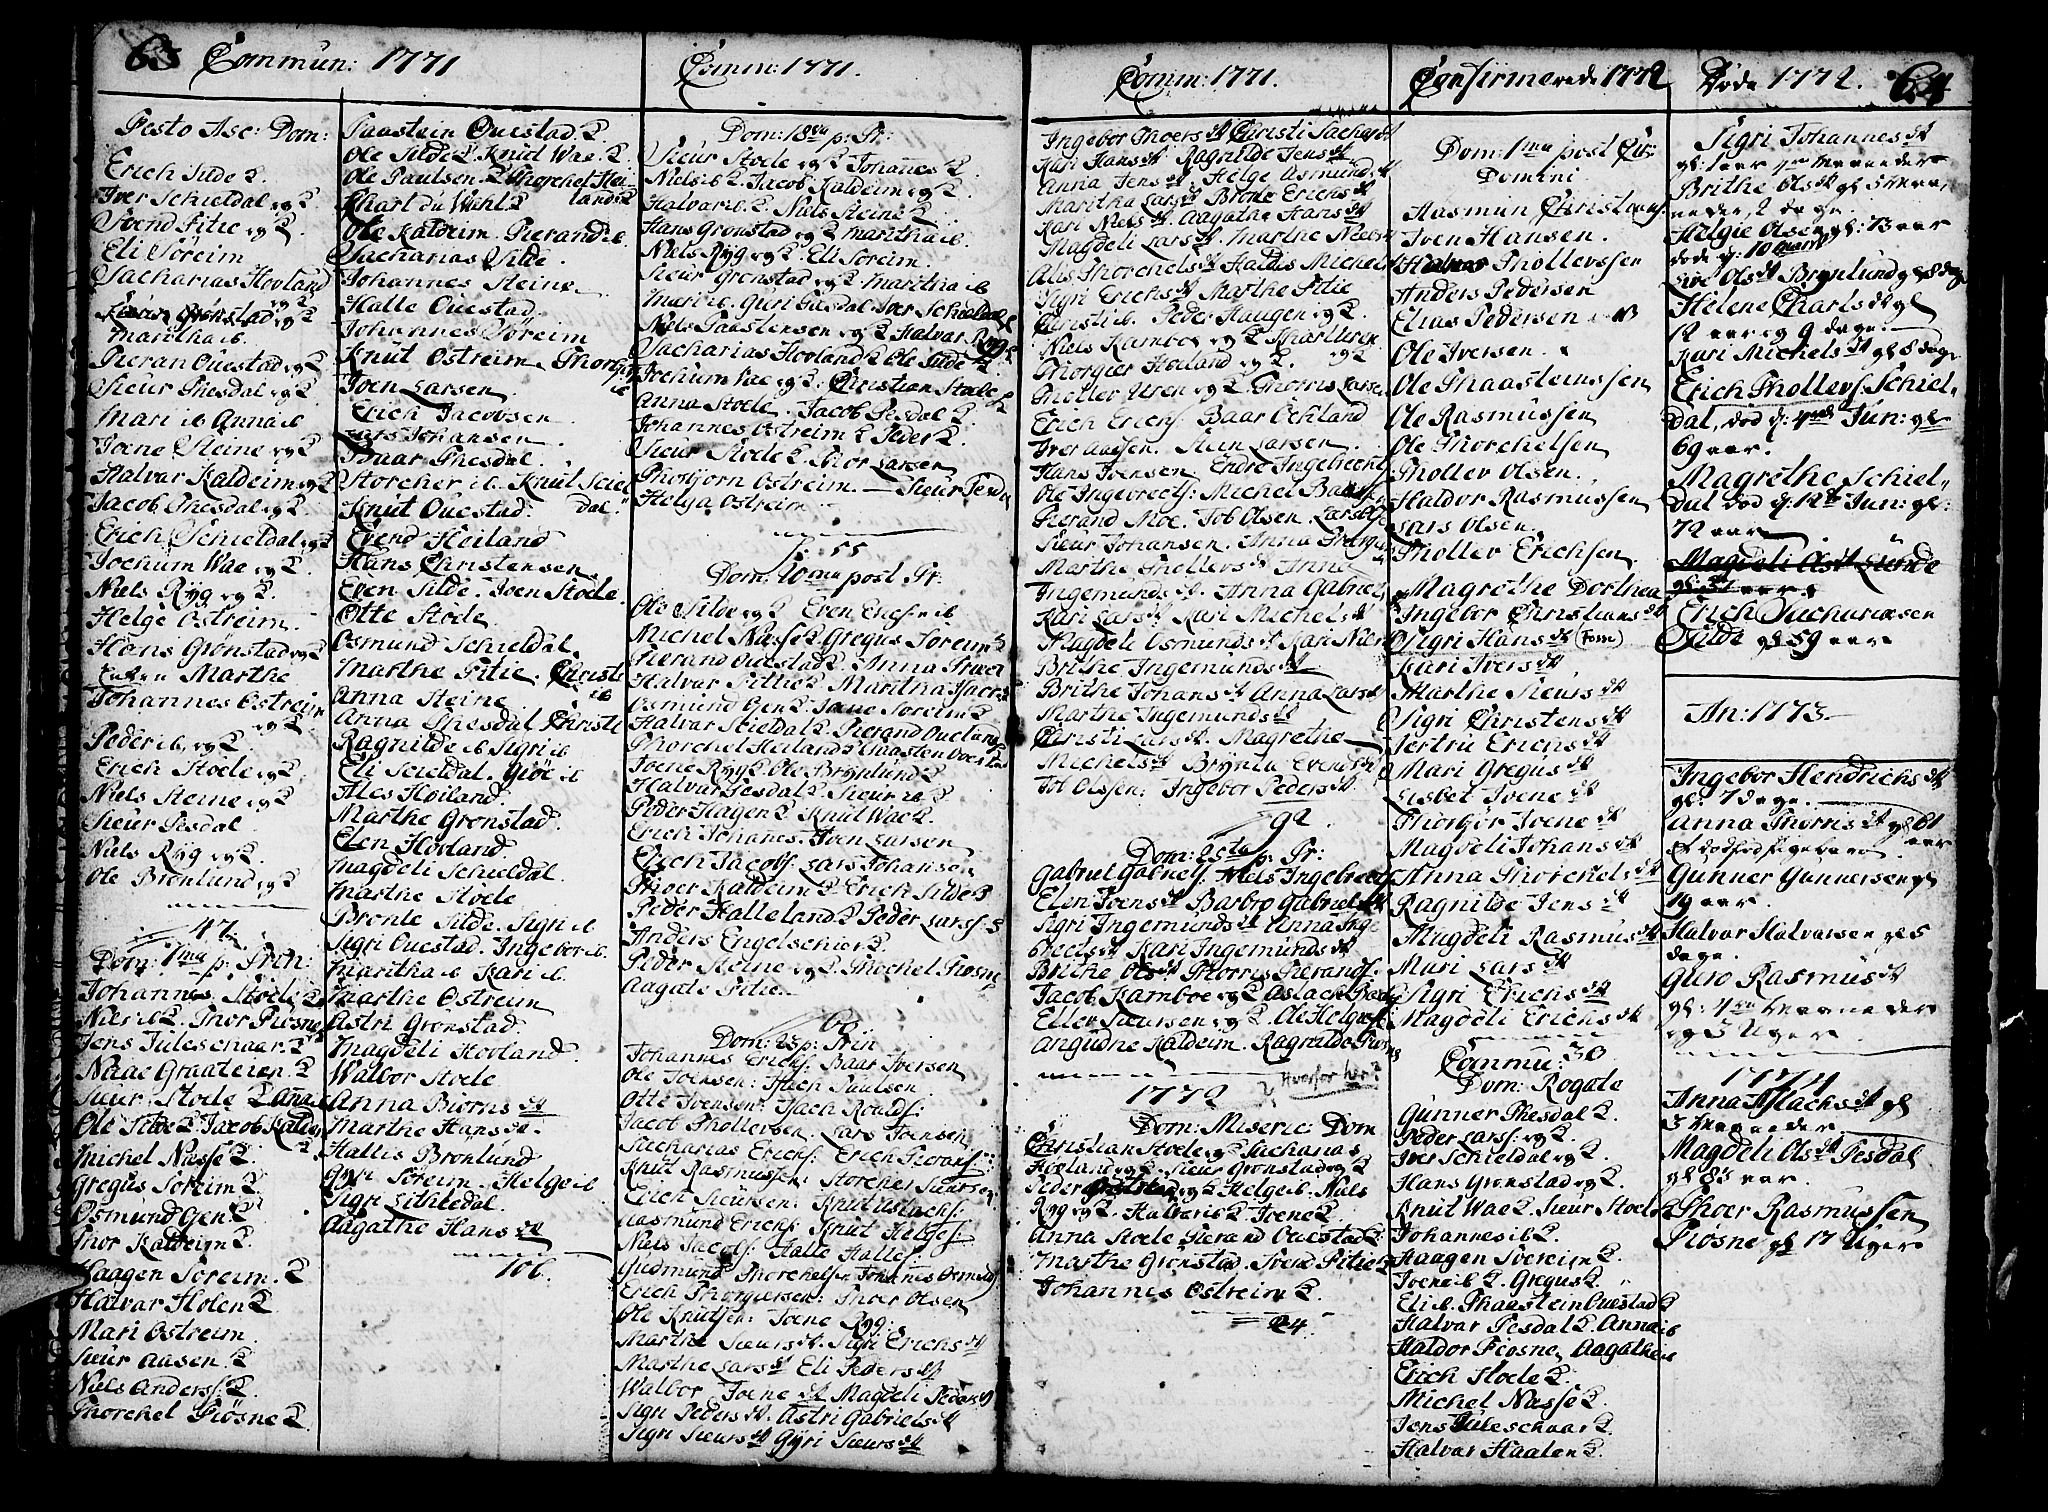 63 Commun: 1771
Festo Asc: Dom:
Erich Silde 2.
Iver Schieldal og 2
Svend Fitie og 2.
Eli Soreim
Sacharias Hovland
og 2
Sieur Grönstad og 2
Martha ib
Pieran Ouestad og 2
Sieur Thesdal og 2.
Mari ib Anna ib
Joene Steine og 2
Halvar Kaldeim og 2
Jacob Thesdal og 2
Erich Schieldal og 2
Jochum Wae og 2.
Niels Ryg og 2.
Helge Östreim.
Hans Grönstad og 2
Enken Marthe
Johannes Östreim
og 2.
Peder ib og 2
Erich Stoele og 2
Niels Steine og 2
Sieur Pesdal
Niels Ryg og 2.
Ole Brönlund og 2
47.
Dom: 7ma p. Trin:
Johannes Stoele 2
Niels ib 2. Thor Piosne
Jens Juleschaar 2
Naae Graateren 2
Sieur Stoele 2 Anna
Ole Silde 2 Jacob Kaldeim
2
Michel Næsse 2
Gregus Soreim 2
Osmund Gen 2
Thor Kaldeim 2.
Haagen Soreim. 2
Halvar Holen 2
Mari Östreim
Sieur Aasen 2
Niels Anderss: 2.
Thorchel Piösne 2
Faastein Ouestad 2
Ole Silde 2. Knud Wae 2.
Ole Paulsen 2 Thorchel Hei-
land 2
Charl du Wahl 2
Ole Kaldeim. Pierand ib
Sacharias Silde.
Johannes Steine
Halle Ouestad.
Johannes Söreim
Knut Ostreim. Thorgier
ib
Iven Larsen
Erich Jacobsen
Lars Johansen
Baar Thesdal.
Storcher ib. Knut Sciel
dal
Knut Ouestad.
Evend Höiland
Hans Christensen
Even Silde. Iven Stoele.
Otte Stoele
Osmund Schieldal
Marthe Fitie. Christi
ib
Anna Steine
Anna Thesdal Christi
Ragnilde ib Sigri ib
Eli Scieldal. Giöe ib
Ales Höiland.
Marthe Grönstad.
Elen Hovland
Magdeli Schieldal.
Marthe Stoele
Bronle Silde. Sigri ib
Sigri Ouestad. Ingebor ib.
Maritha ib Kari ib
Marthe Östreim
Astri Grönstad
Magdeli Hovland.
Walbor Stoele
Anna Biörns dt
Marthe Hans dt.
Hallis Brönlund
Gyri Söreim. Helge ib
Sigri Lithledal.
Aagathe Hans dt
106.
Comm: 1771.
Dom: 18va p: Tr:
Sieur Stoele og 2 Johannes 2
Niels ib 2. Jacob Kaldeim og 2.
Halvar ib 2. Niels Steine 2.
Hans Grönstad og 2 Maritha ib
Niels Ryg og 2. Eli Söreim.
Sieur Grönstad og 2 Maritha ib
Mari ib. Guri Thesdal. Iver Schieldal 2
Niels Faastensen og 2 Halvar Ryg 2
Sacharias Hovland 2 Ole Silde 2
Jochum Vae og 2. Christian Stoele 2
Anna Stoele. Jacob Pesdal 2.
Johannes Östreim 2 Peder 2.
Sieur Stoele 2. Thor Larsen
Thorbjorn Östreim. Sieur Ferda
Helga Östreim.
p: 55
Dom: 20ma post Tr:
Ole Silde og 2 Even Erichs: ib
Michel Næsse 2. Gregus Soreim 2
Pierand Ouestad 2. Anna
Halvar Fittie 2 Maritha
Osmund Gen 2 Joene Soreim 2
Halvar Stieldal 2. Pierand Oueland 2
Thorchel Heiland 2 Faasten Ouestad
Joene Ryg 2. Ole Brynlund 2
Halvar Pesdal 2. Sieur ib 2
Peder Hagen 2. Knut Wae 2.
Erich Johanes. Iven Larsen
Erich Jacobs: Lars Johansen
Thoer Kaldeim 2 Erich Silde 2
Peder Halleland 2 Peder Larss: 2
Anders Engelschior 2
Peder Steine og 2. Thorchel Piosne
Aagate Fitie.
66
Dom: 23 p: Trin
Johannes Erichs: Baar Iversen
Ole Joensen: Isach Paulsen
Otte Ivensen: Isach Roalds:
Jacob Thollevsen. Lars Joensen
Sacharias Erichs: Erich Pierans:
Knut Rasmussen: Storcher Sieursen
Erich Sieursen: Knut Aslachs:
Aasmund Erichs: Knut Helges:
Niels Jacobs: Halle Halles:
Gudmund Thorchelsen Johannes Osmunds:
Erich Thorgiersen: Thoer Olsen
Ole Knutsen: Joene Ryg:
Marthe Sieurs dt. Sigri Erichs dt
Marthe Lars dt Eli Peders dt
Walbor Joene dt Magdeli Peders dt
Sigri Peders dt. Astri Gabriels dt
Sigri Sieurs dt Gyri Sieurs dt
Comm: 1771.
Ingebor Thoers dt Christi Sachar dt
Kari Hans dt Ragnilde Jens dt
Anna Jens dt Helge Osmunds dt
Maritha Lars dt Bronle Erichs dt
Kari Niels dt. Aagathe Hans dt
Magdeli Lars dt. Marthe Niels dt
Alis Thorchels dt Haldis Michels
Sigri Erichs dt Marthe Fitie
Christi ib. Peder Haugen og 2.
Niels Kamboe og 2
og 2
Thorgier Höiland og 2.
og 2 Thorris Larsen
Erich Erichs: Baar Ochland
Iver Aadsen. Sten Larsen.
Hans Ivensen. Endre Ingebrecht
Ole Ingebrects: Michel Baars:
Pierand Moe. Job Olsen. Lars
Sieur Johansen. Anna Thorgier
Marthe Thollevs dt Anne
Ingemunds dt. Anna Gabriels
Kari Lars dt Kari Michels dt
Magdeli Osmunds dt Kari Niels
Brithe Ingemunds dt
Brithe Johans dt Anna Lars dt
Marthe Ingemunds dt
Christi Lars dt. Magrethe
Michels dt Brynla Evends dt
Job Olssen: Ingebor Peders dt
92.
Dom: 25ta p: Tr:
Gabriel Gabriels: Niels Ingebrects
Elen Ivens dt Barbro Gabriels dt
Sigri Ingemunds dt Anna Inge
brects dt Kari Ingemunds dt
Brithe Ols dt Thorris Pierands:
Jacob Kamboe og 2 Aslach
Eller Sieursen og 2. Ole Helges:
Angudne Kaldeim. Ragnilde Piosne
1772
? Hvorfor her?
Dom: Miseric: Dom
Christian Stoele og 2 Sacharias
Hovland og 2. Sieur Grönstad og 2
Peder og 2 Helge ib. Niels
Ryg og 2. Halvar ib 2 Joene 2
Anna Stoele Pierand Ouestad 2
Marthe Grönstad. Svend Fitie 2
Johannes Östreim 2.
24.
Confirmerede 1772
Dom: 1ma post Cir:
Domini
Aasmun Christians:
Iven Hansen.
Halvor Thollevssen
Anders Pedersen
Elias Pedersen
Ole Iversen.
Ole Thaasteinssen
Ole Rasmussen
Ole Thorchelsen
Thollev Olsen.
Haldor Rasmussen
Lars Olsen.
Thollev Erichsen
Magrethe Dorthea
Ingebor Christians dt
Sigri Hans dt (Fom)
Kari Ivers dt
Marthe Sieurs dt
Sigri Christens dt
Sertru Erichs dt
Mari Gregus dt
Lisbet Joene dt
Thorbor Joene dt
Magdeli Johans dt
Anna Thorchels dt
Ragnilde Jens dt
Magdeli Rasmus dt
Mari Lars dt
Sigri Erichs dt
Magdeli Erichs dt
30
Commu:
Dom: Rogate
Gunner Thesdal 2.
Peder Larss: og 2.
Iver Schieldal og 2.
Hans Grönstad og 2.
Knut Wae 2. Sieur Stoele 2
Johannes ib 2.
Haagen Svereim 2.
Joene ib 2. Gregus 2.
Eli ib. Thaastein Ouestad 2
Halvar Pesdal 2. Anna ib
Haldor Piosne, Aagathe ib
Erich Stoele 2.
Michel Næsse 2.
Jens Juleschaar 2.
Halvar Haalen 2
Døde 1772. 64
Sigri Johannes dt
gl: 1 aar maaneder
Brithe Ols dt gl 5 maa,
neder, 2 dage.
Helgie Olsen gl: 73 aar
døde d: 10 Marti
Ols dt Brynlund gl 8 dage
Helene Charls dt gl
12 aar og 9 dage.
Kari Michels dt gl 8 dage
Erich Thollevs: Schiel-
dal, død d: 4de Jun: gl
69 aar.
Magrethe Schiel-
dal død d: 12te Jun: gl:
72 aar
Magdeli Lunde
gl: aar
Erich Sachariasen
Silde gl 59 aar
An: 1773
Ingebor Hendrichs dt
gl: 7 dage.
Anna Thorris dt gl 61
aar
Gunner Gunnersen gl
19 aar.
Halvar Halvarsen gl 5
dage.
Guro Rasmus dt
gl: 4 maaneder
og 3 Uger.
1774
Anna Aslachs dt gl
3 maaneder.
Magdeli Ols dt Pesdal
gl 83 aar.
Thoer Rasmussen
Piösne gl 17 Uger